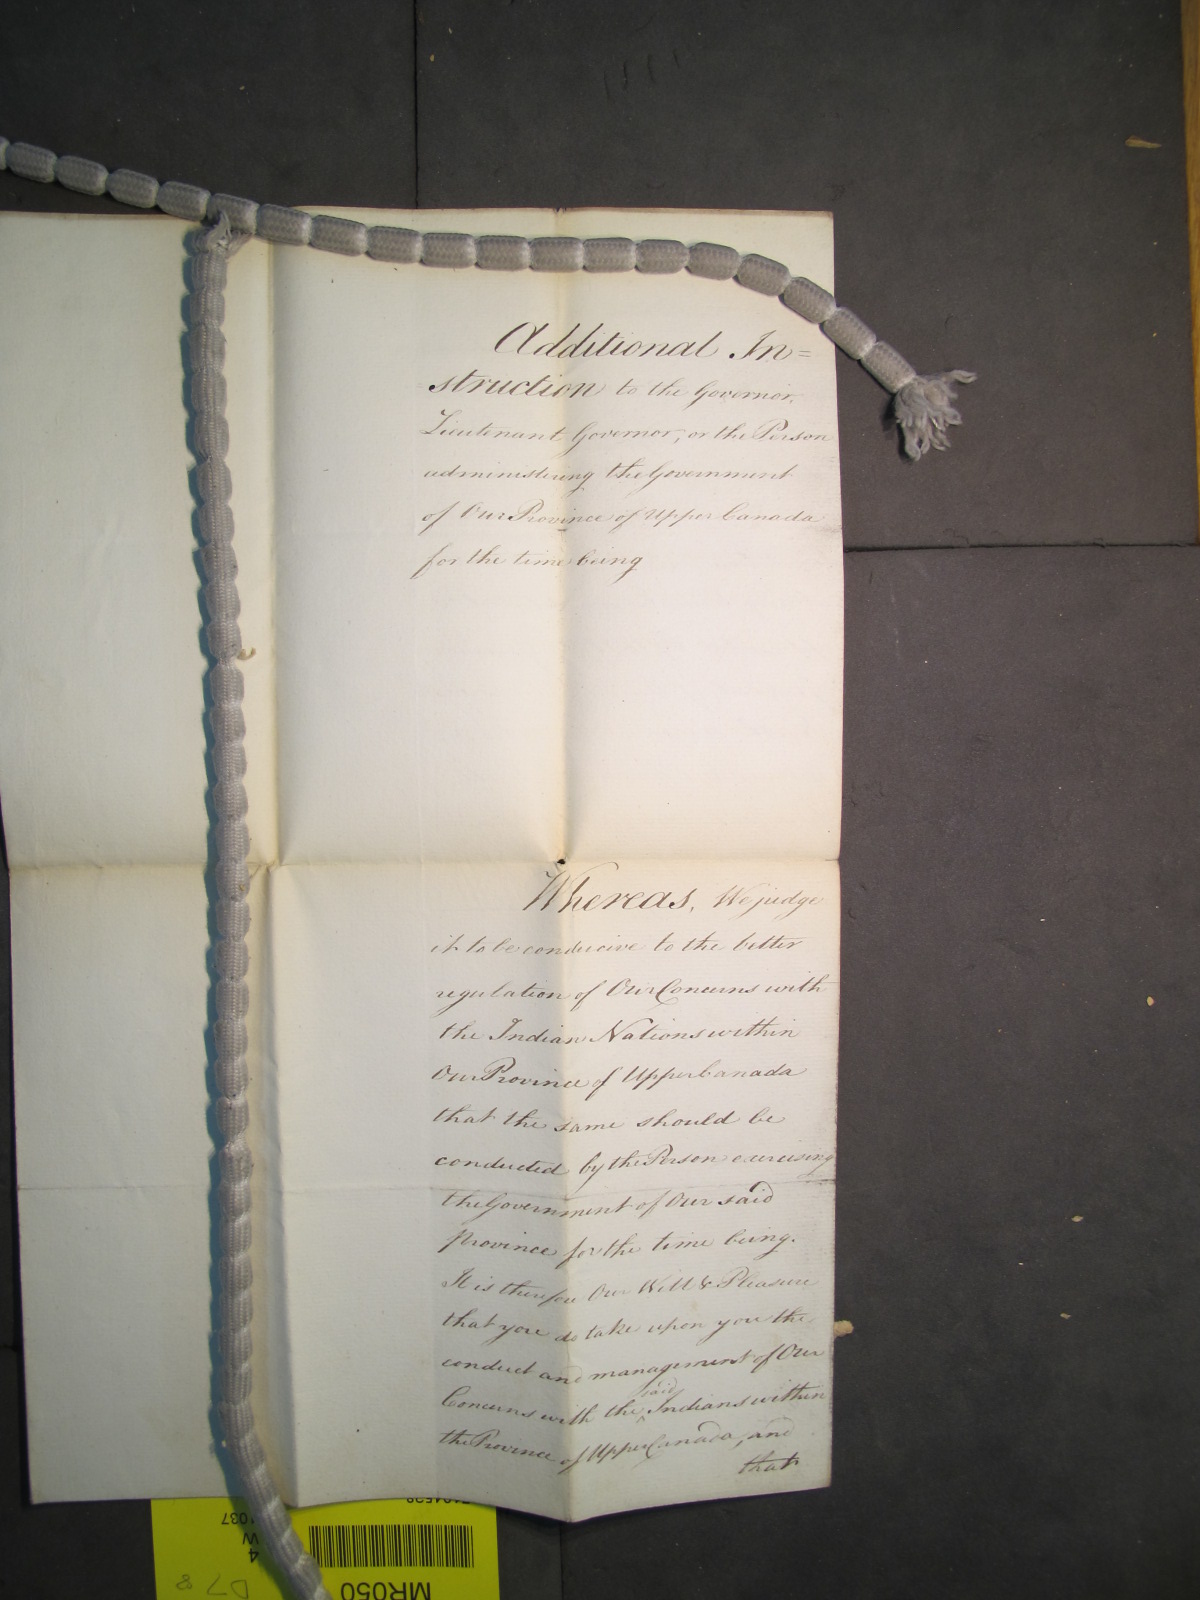 Additional In=
struction to the Governor,
Lieutenant Governor, or the Person
administering the Government
of Our Province of Upper Canada
for the time being
Whereas, We judge
it to be conducive to the better
regulation of Our Concerns with
the Indian Nations within
Our Province of Upper Canada
that the same should be
conducted by the Person exercising
the Government of Our said
Province for the time being.
It is therefore Our Will & Pleasure
that you do take upon you the
conduct and management of Our
said
Concerns with the ^ Indians within
the Province of Upper Canada, and
that
MR050
4
W
1037
D7 8